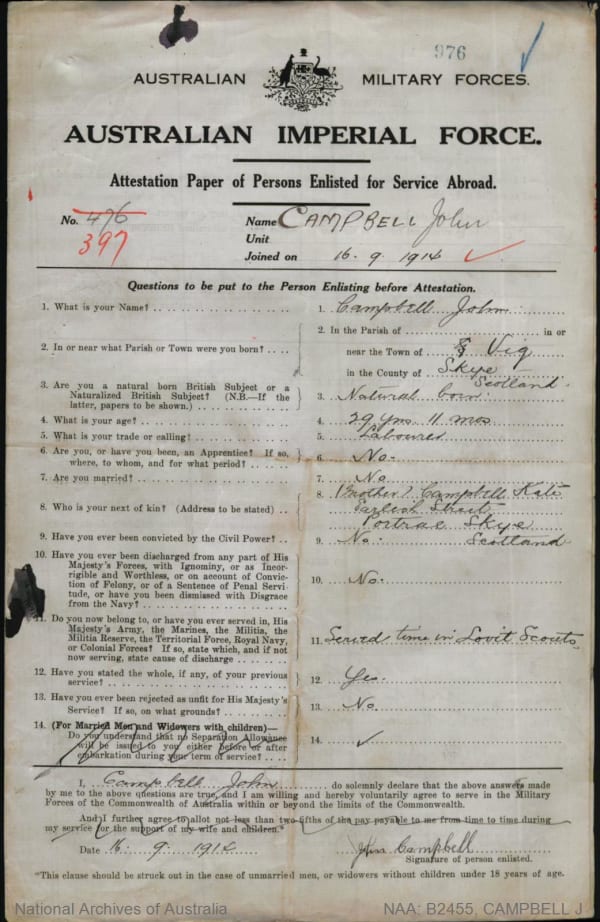 976
AUSTRALIAN MILITARY FORCES.
AUSTRALIAN IMPERIAL FORCE.
Attestation Paper of Persons Enlisted for Service Abroad.
No. 476 Name CAMPBELL John
397 Unit
Joined on 16. 9. 1914
Questions to be put to the Person Enlisting before Attestation.
1. What is your Name? 1. Campbell John
2. In or near what Parish or Town were you born? 2. In the Parish of in or
near the Town of Vig
in the County of Skye
Scotland
3. Are you a natural born British Subject or a
Naturalized British Subject? (N.B.—If the
latter, papers to be shown.) 3. Natural born.
4. What is your age? 4. 29 yrs 11 mos
5. What is your trade or calling? 5. Labourer
6. Are you, or have you been, an Apprentice? If so,
where, to whom, and for what period? 6. No.
7. Are you married? 7. No
8. Who is your next of kin? (Address to be stated) 8. (Mother) Campbell Kate
Street
Portree Skye
Scotland
9. Have you ever been convicted by the Civil Power? 9. No.
10. Have you ever been discharged from any part of His
Majesty's Forces, with Ignominy, or as Incor-
rigible and Worthless, or on account of Convic-
tion of Felony, or of a Sentence of Penal Servi-
tude, or have you been dismissed with Disgrace
from the Navy? 10. No.
11. Do you now belong to, or have you ever served in, His
Majesty's Army, the Marines, the Militia, the
Militia Reserve, the Territorial Force, Royal Navy,
or Colonial Forces? If so, state which, and if not
now serving, state cause of discharge 11. Served time in Lovit Scouts
12. Have you stated the whole, if any, of your previous
service? 12. Yes.
13. Have you ever been rejected as unfit for His Majesty's
Service? If so, on what grounds? 13. No.
14. (For Married Men and Widowers with children)—
Do you understand that no Separation Allowance
will be issued to you either before or after
embarkation during your term of service? 14.
I, Campbell John do solemnly declare that the above answers made
by me to the above questions are true, and I am willing and hereby voluntarily agree to serve in the Military
Forces of the Commonwealth of Australia within or beyond the limits of the Commonwealth.
And I further agree to allot not less than two-fifths of the pay payable to me from time to time during
my service for the support of my wife and children.*
Date 16. 9. 1914 John Campbell
Signature of person enlisted.
*This clause should be struck out in the case of unmarried men, or widowers without children under 18 years of age.
National Archives of Australia NAA: B2455, CAMPBELL J